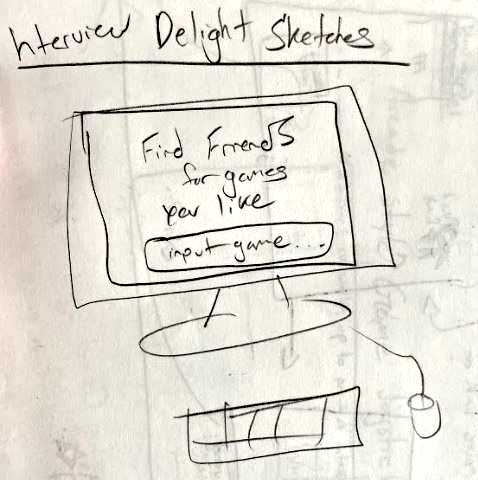 Interview Delight Sketches
Find Friends
for games
you like
input game...